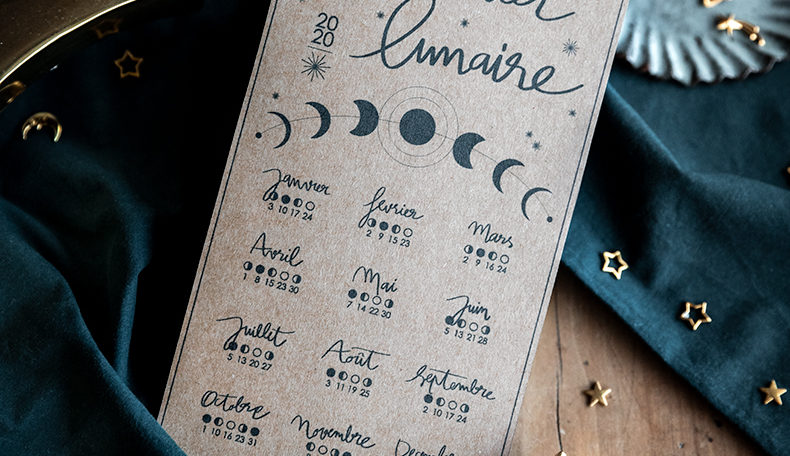 2020
lunaire
Janvier
3 10 17 24
février
2 9 15 23
Mars
2 9 16 24
Avril
1 8 15 23 30
Mai
7 14 22 30
Juin
5 13 21 28
Juillet
5 13 20 27
Août
3 11 19 25
Septembre
2 10 17 24
Octobre
1 10 16 23 31
Novembre